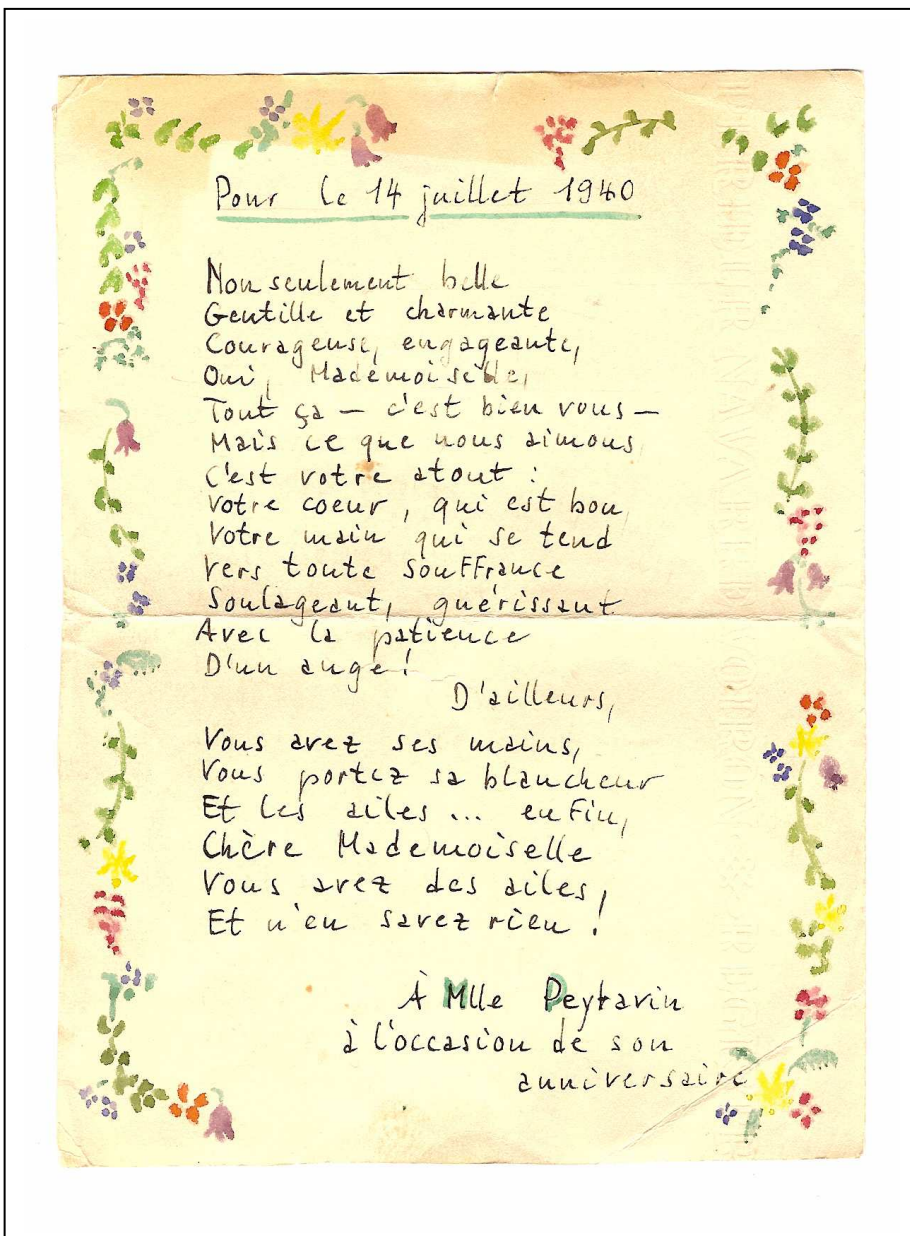 Pour le 14 juillet 1940
Non seulement belle
Gentille et charmante
Courageuse, engageante,
Oui, Mademoiselle,
Tout ça — c'est bien vous —
Mais ce que nous aimons,
C'est votre atout :
Votre coeur, qui est bon,
Votre main qui se tend
Vers toute souffrance
Soulageant, guérissant
Avec la patience
D'un ange!
D'ailleurs,
Vous avez ses mains,
Vous portez sa blancheur
Et les ailes... enfin,
Chère Mademoiselle
Vous avez des ailes,
Et n'en savez rien!
À Mlle Peytavin
à l'occasion de son
anniversaire